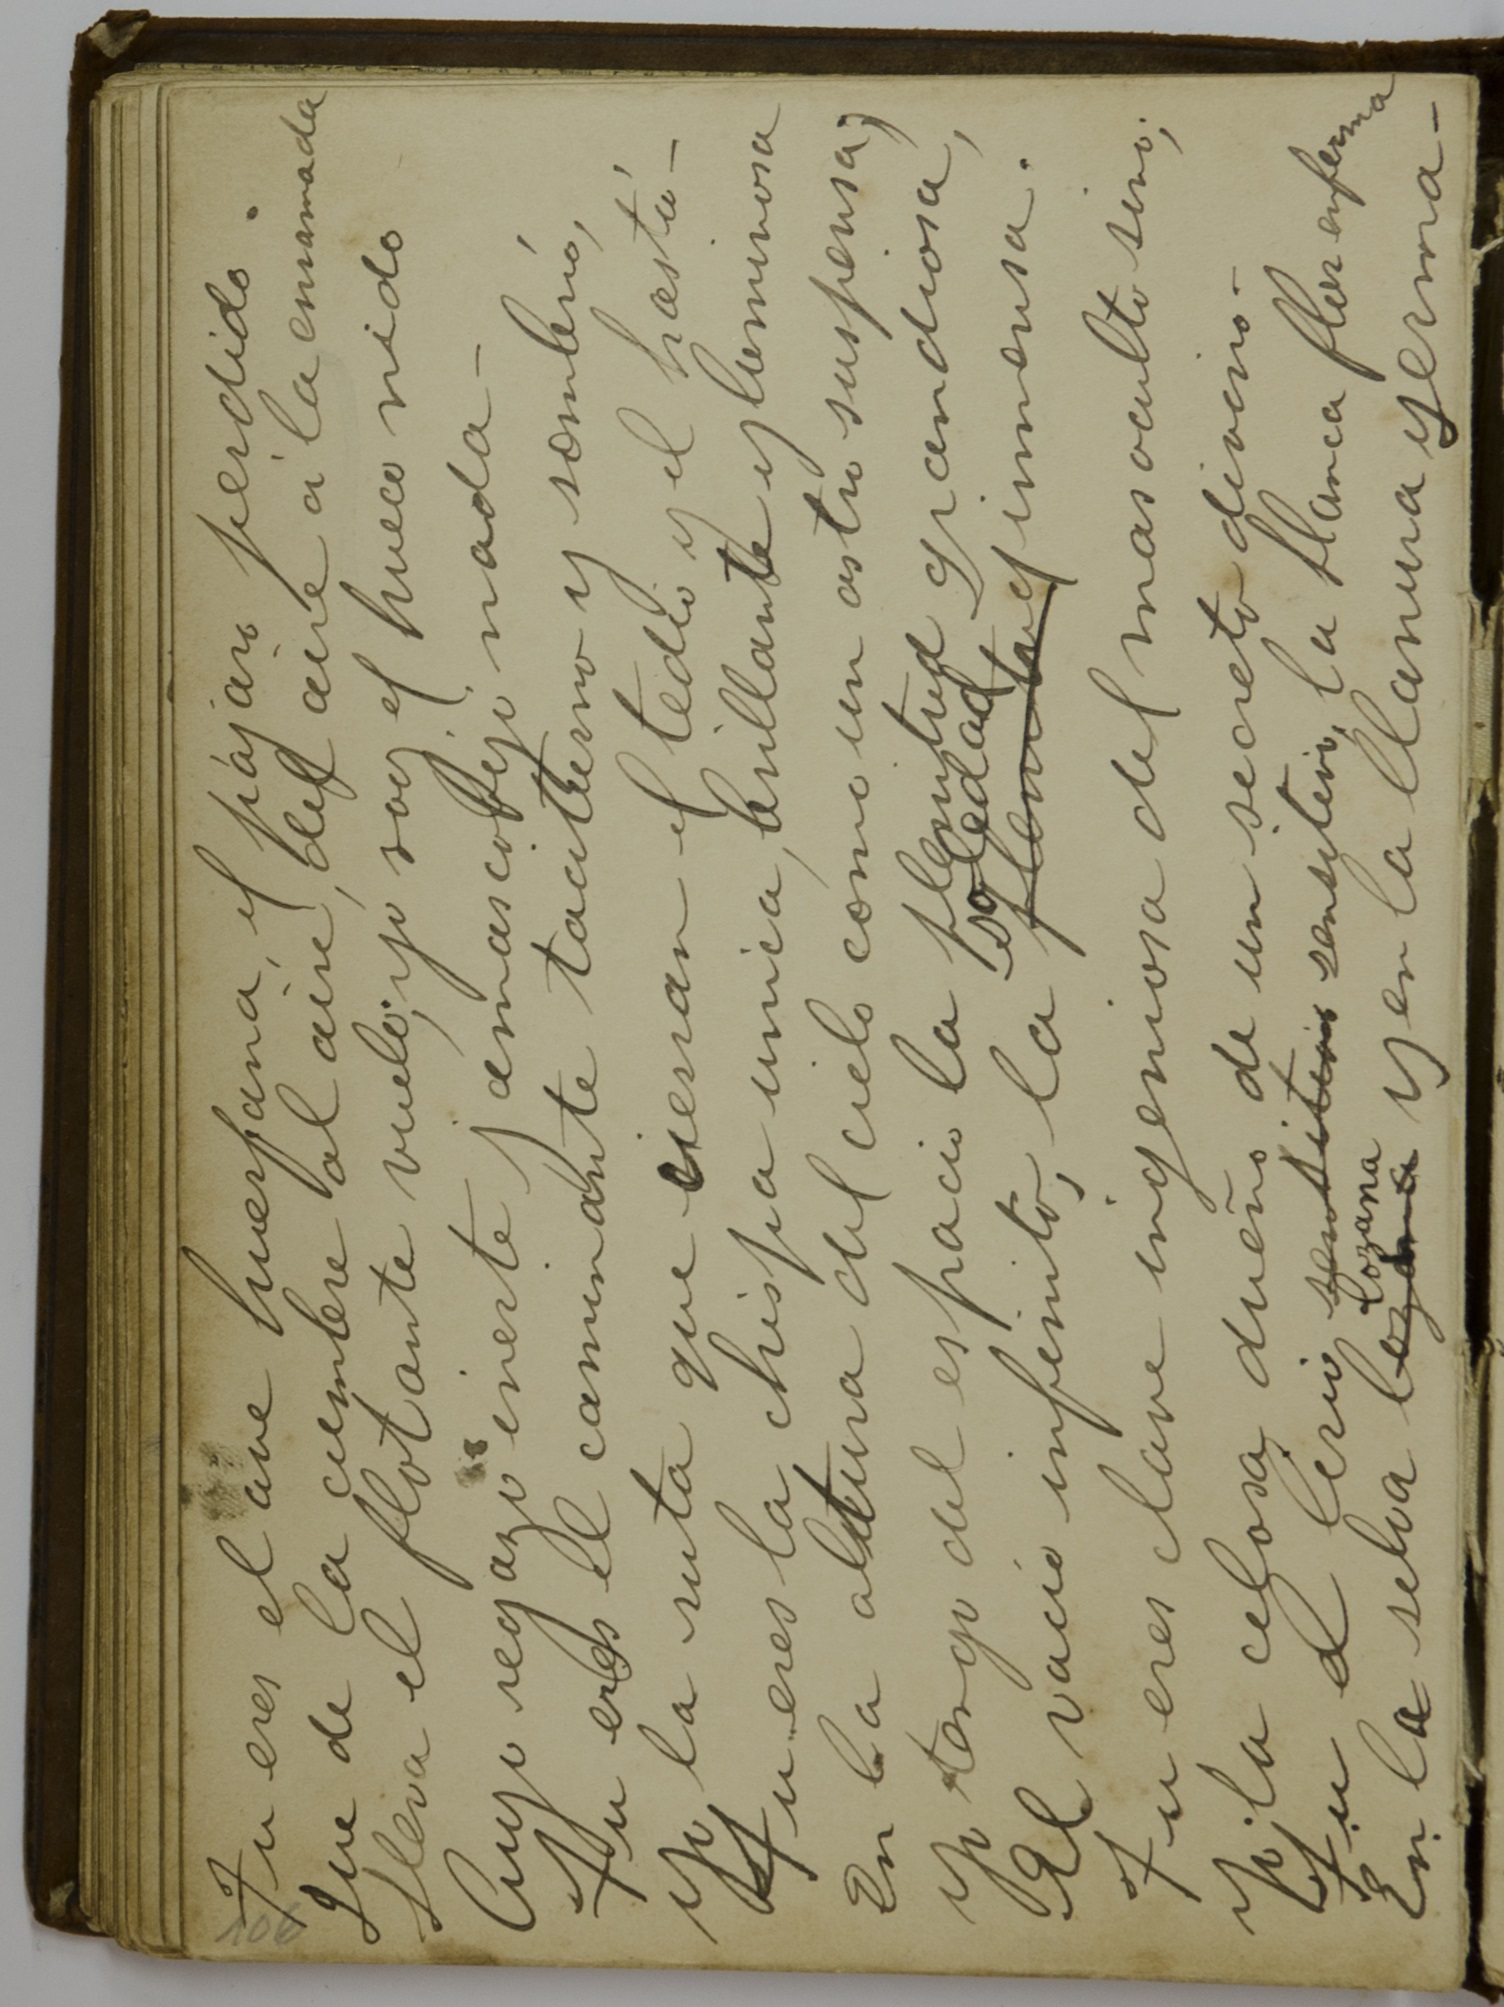 106
Tu eres el ave huerfana, el pájaro perdido.
Que de la cumbre al aire, del aire á la enramada
Lleva el flotante vuelo; yo soy el hueco nido
Cuyo regazo inerte jamas cobijo nada—
Tu eres el caminante taciturno y sombrio,
Yo la ruta que cierran el tedio y el hastio—
Tu eres la chispa unica, brillante y luminosa
En la altura del cielo como un astro suspensa;
Yo tengo del espacio la plenitud grandiosa,
El vacio infinito, la plenitud soledad é inmensa.
Tu eres clave ingeniosa del mas oculto sino;
Yo la celosa dueño de un secreto divino—
Tu el lirio sensitivo sensitivo, la blanca flor enferma
En la selva lozana lozana y en la llanura yerma—